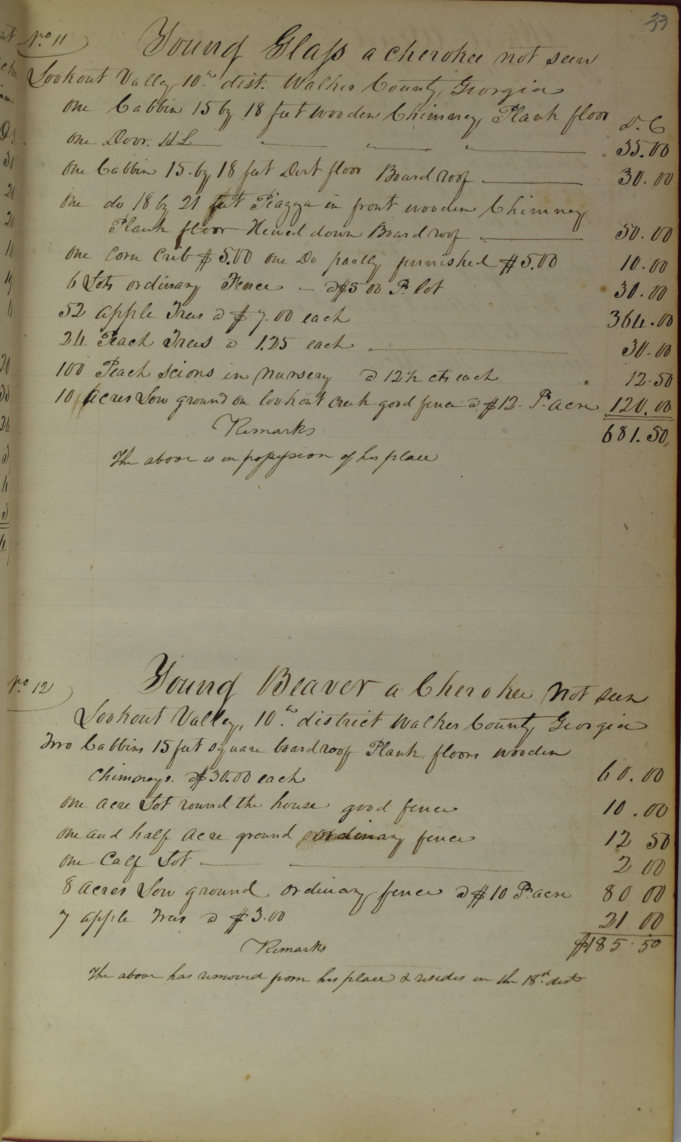 33
No. 11 Young Glass a cherokee not seen
Lookout Valley 10th dist. Walker County Georgia
one Cabbin 15 by 18 feet wooden Chimney Plank floor D. C
one Door. 35.00
one Cabbin 15 by 18 feet Dirt floor Board roof 30.00
one do 18 by 21 feet Piazza in front wooden Chimney
Plank floor Hewed down Board roof 50.00
one Corn Crib $5.00 one Do partly furnished $5.00 10.00
6 Lots ordinary Fence - @ $5.00 P. lot 30.00
52 apple Trees @ $7.00 each 364.00
24 Peach Trees @ 1.25 each 30.00
100 Peach scions in nursery @ 12½ cts each 12.50
10 acres Low ground on lookout creek good fence @ $12. P. acre 120.00
Remarks 681.50
The above is in possession of his place
No. 12 Young Beaver a Cherokee not seen
Lookout Valley, 10th district Walker County Georgia
Two Cabbins 15 feet square board roof Plank floors wooden
Chimneys. @ $30.00 each 60.00
one acre Lot round the house good fence 10.00
one and half acre ground ordinary fence 12 50
one Calf Lot 2 00
8 acres Low ground ordinary fence @ $10 P. acre 80 00
7 apple Trees @ $3.00 21 00
Remarks $185.50
The above has removed from his place & resides in the 18th dist